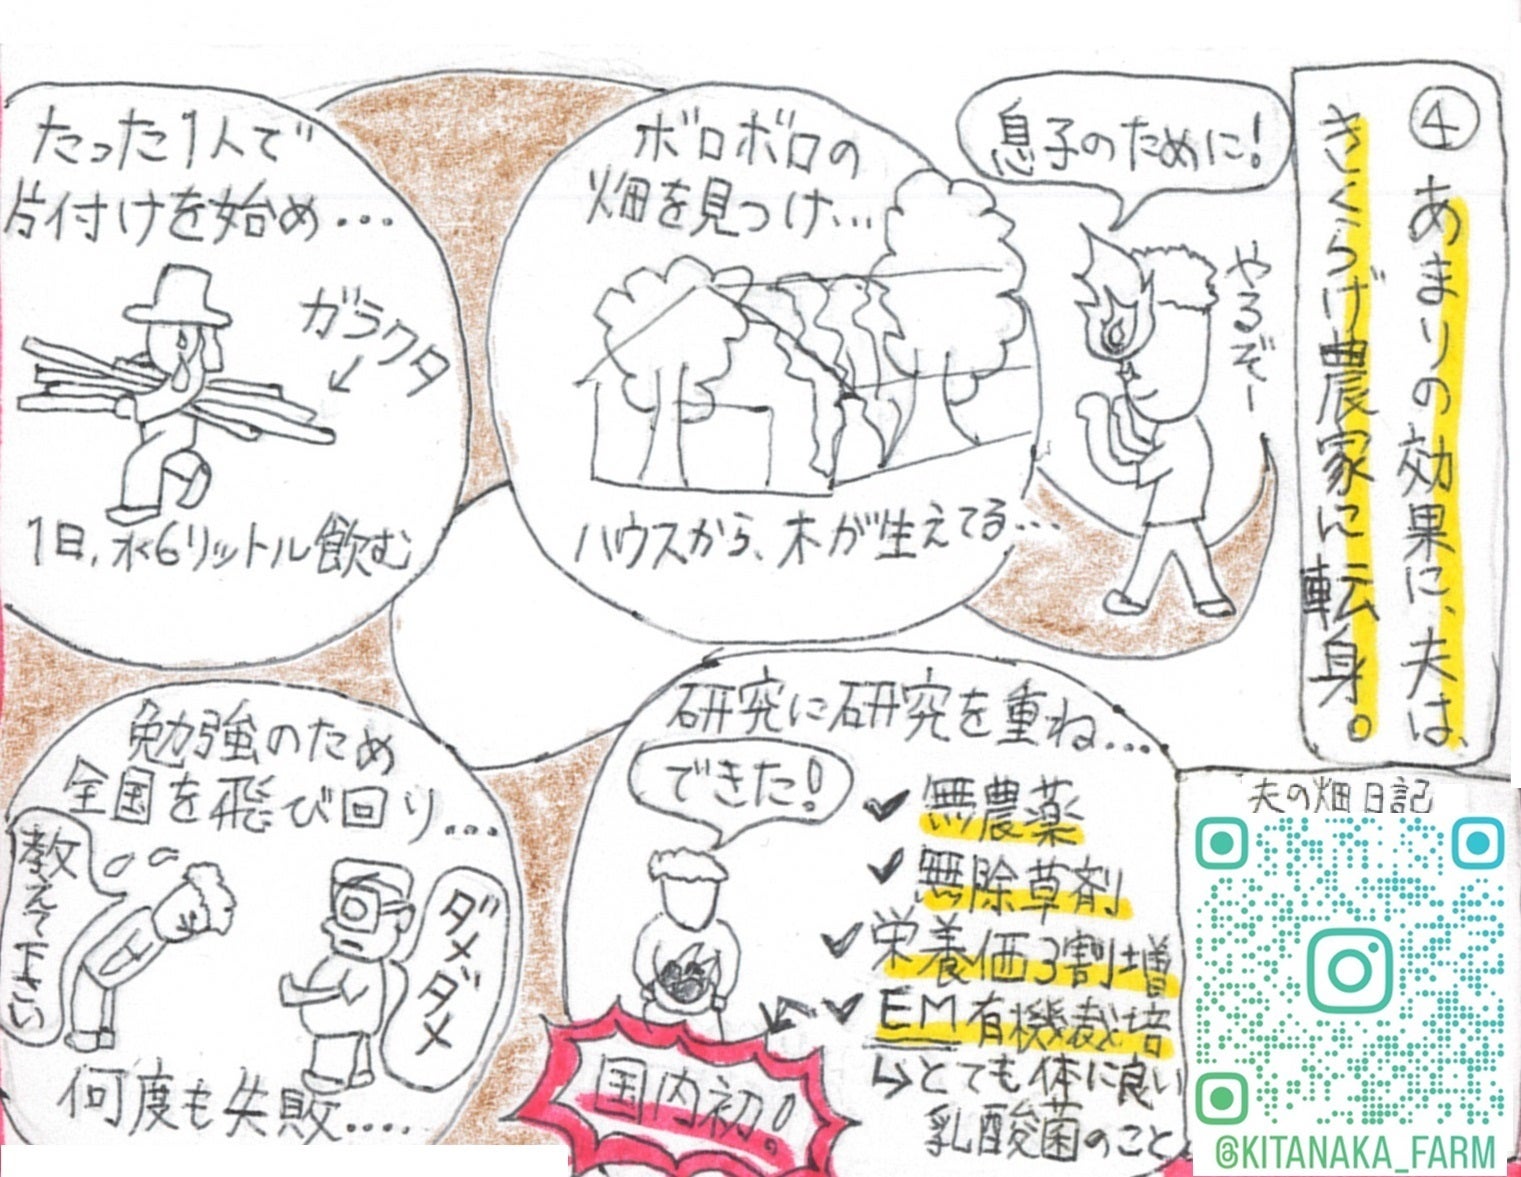 ④あまりの効果に、夫は、
きくらげ農家に転身。
息子のために!
やるぞー
ボロボロの
畑を見つけ…
ハウスから、木が生えてる…
たった1人で
片付けを始め…
ガラクタ
1日、水6リットル飲む
勉強のため
全国を飛び回り…
教えて下さい
ダメダメ
何度も失敗….
研究に研究を重ね….
できた!
✓無農薬
✓無除草剤
✓栄養価3割増
✓EM有機栽培
↳とても体に良い
乳酸菌のこと
国内初!
夫の畑日記
@KITANAKA_FARM